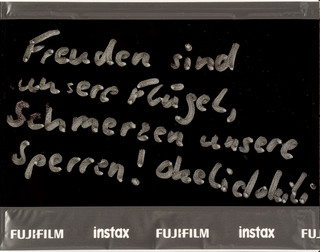 Freuden sind
unsere Flügel,
Schmerzen unsere
Sperren! chelidokili
FUJIFILM instax FUJIFILM instax FU